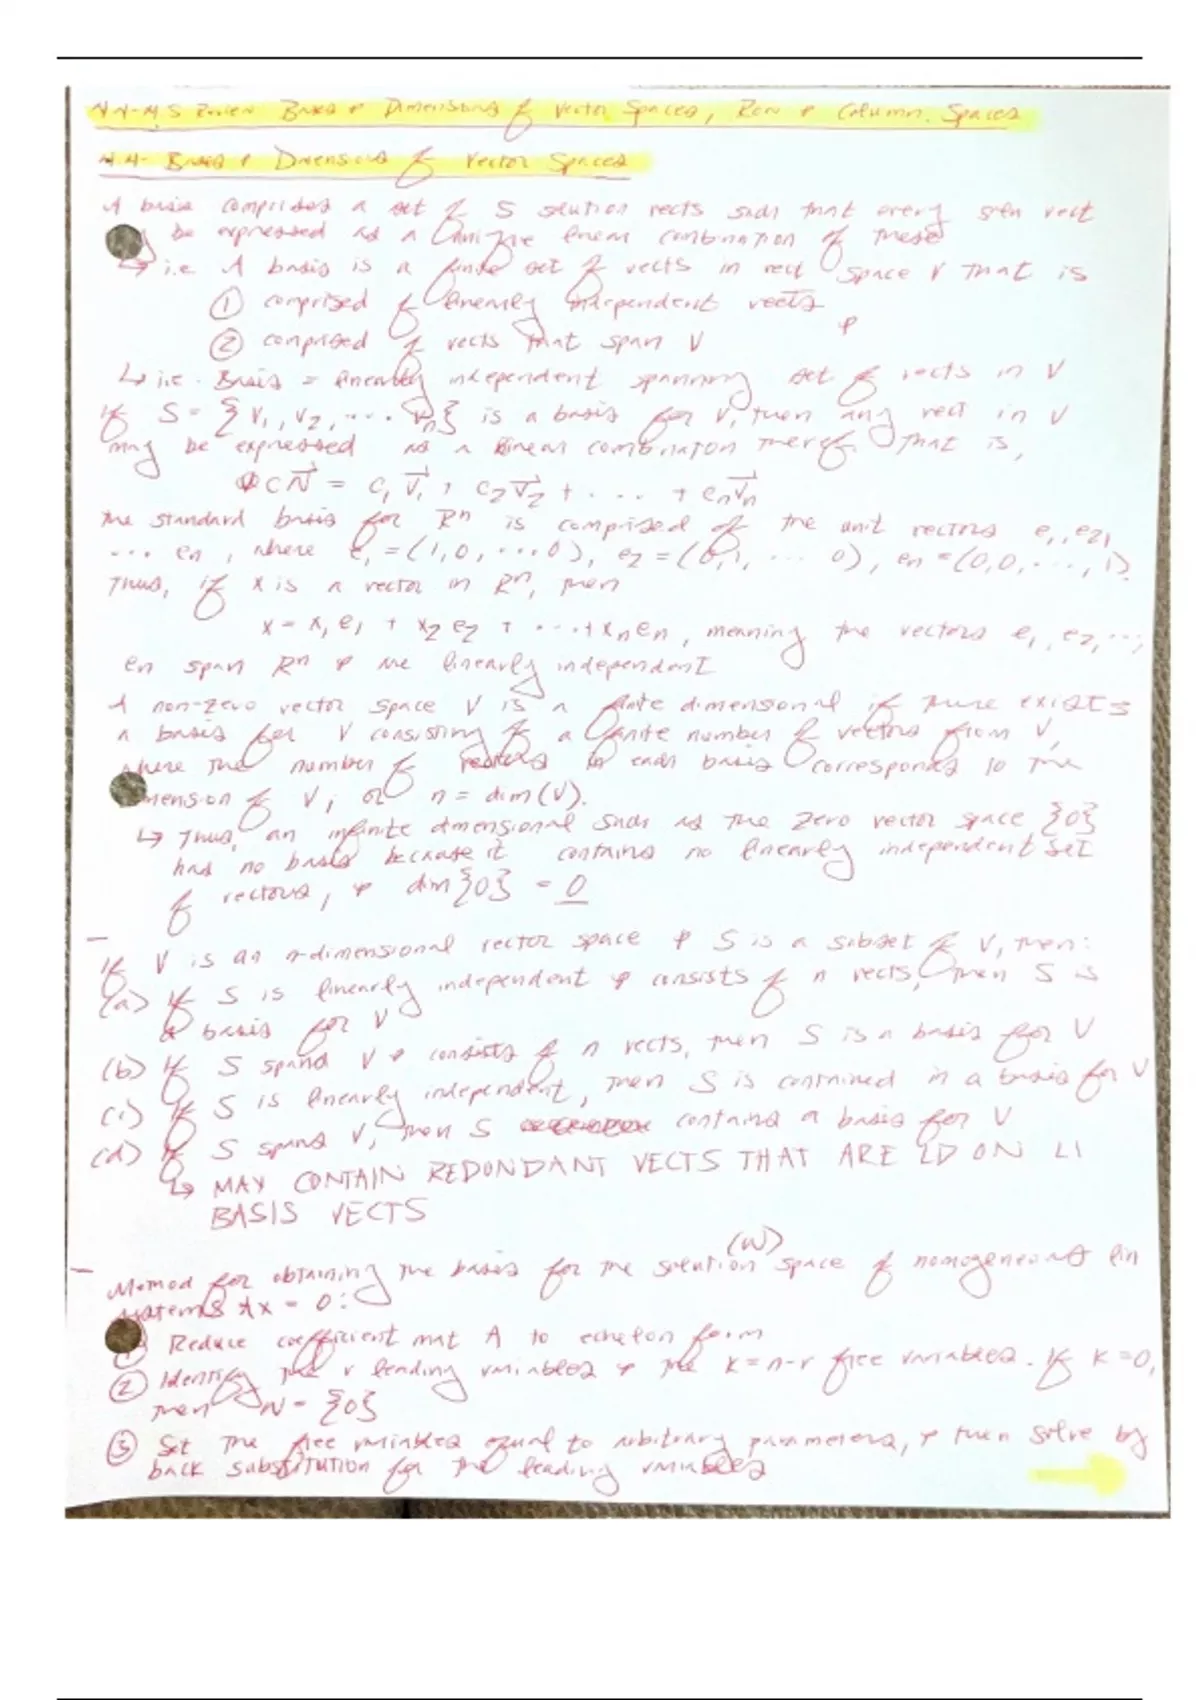 4.4-4.5 Review Bases & Dimensions of Vector Spaces, Row & Column Spaces
4.4- Bases & Dimensions of Vector Spaces
A basis comprises a set of S solution vects such that every soln vect
be expressed as a unique linear combination of these
↳ i.e. A basis is a finite set of vects in vect space V that is
① comprised of linearly independent vects &
② comprised of vects that span V
↳ i.e. Basis = linearly independent spanning set of vects in V
If S = {v1, v2, ... vn} is a basis for V, then any vect in V
may be expressed as a linear combination thereof. That is,
= c1 v1 + c2 v2 + ... + cn vn
The standard basis for Rn is comprised of the unit vectors e1, e2,
... en, where e1 = (1,0,...0), e2 = (0,1,... 0), en = (0,0,...,1).
Thus, if x is a vector in Rn, then
x = x1 e1 + x2 e2 + ... + xn en, meaning the vectors e1, e2, ...,
en span Rn & are linearly independent
A non-zero vector space V is a finite dimensional if there exists
a basis for V consisting of a finite number of vectors from V,
where the number of vectors in each basis corresponds to the
mension of V; or n = dim(V).
↳ Thus, an infinite dimensional such as the zero vector space {0}
has no basis because it contains no linearly independent set
of vectors, & dim{0} = 0
If V is an n-dimensional vector space & S is a subset of V, then:
(a) If S is linearly independent & consists of n vects, then S is
a basis for V
(b) If S spans V & consists of n vects, then S is a basis for V
(c) If S is linearly independent, then S is contained in a basis for V
(d) If S spans V, then S contains a basis for V
↳ MAY CONTAIN REDUNDANT VECTS THAT ARE LD ON LI
BASIS VECTS
Method for obtaining the basis for the solution (W) space of homogeneous lin
systems Ax = 0:
Reduce coefficient mat A to echelon form
② Identify the r leading variables & the k = n-r free variables. If k = 0,
then W = {0}
③ Set the free variables equal to arbitrary parameters, & then solve by
back substitution for the leading variables